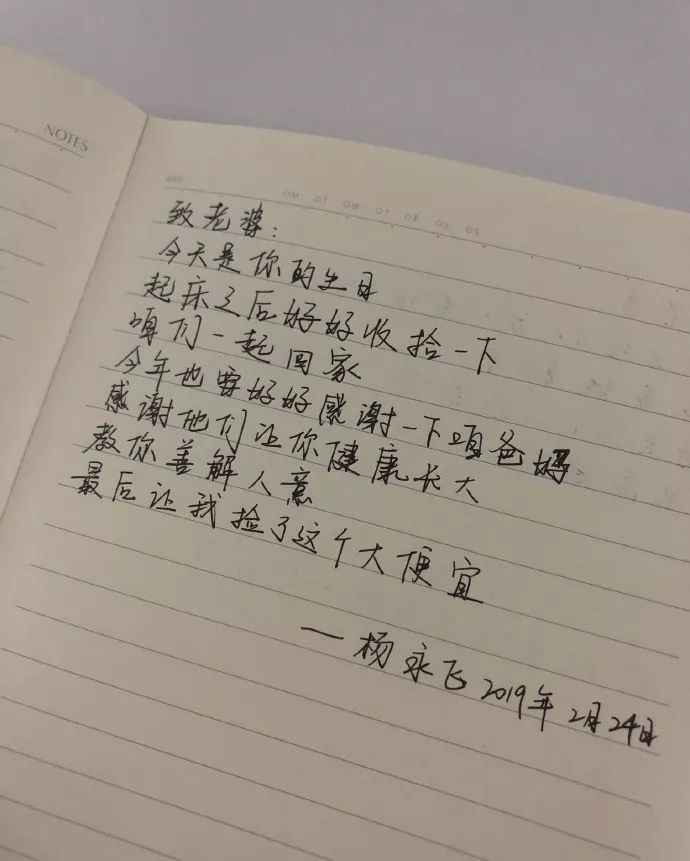 NOTES
致老婆:
今天是你的生日
起床之后好好收拾一下
咱们一起回家
今年也要好好感谢一下咱爸妈
感谢他们让你健康长大
教你善解人意
最后让我捡了这个大便宜
——杨永飞 2019年2月24日